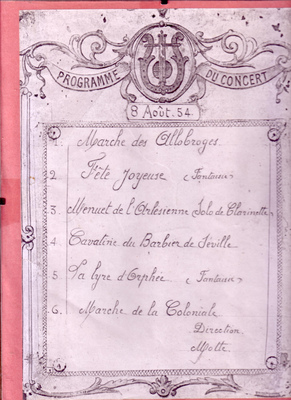 PROGRAMME DU CONCERT
8 Août. 54.
1. Marche des Allobroges.
2 Fête Joyeuse (Fantaisie)
3. Menuet de l'Arlesienne Solo de Clarinette
4. Cavatine du Barbier de Séville
5 La lyre d'Orphée (Fantaisie)
6. Marche de la Coloniale
Direction
Motte